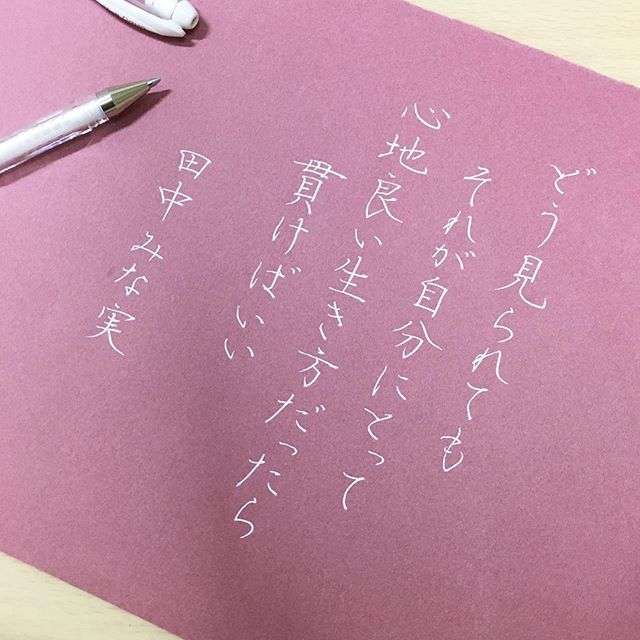 どう見られても
それが自分にとって
心地良い生き方だったら
貫けばいい
田中みな実